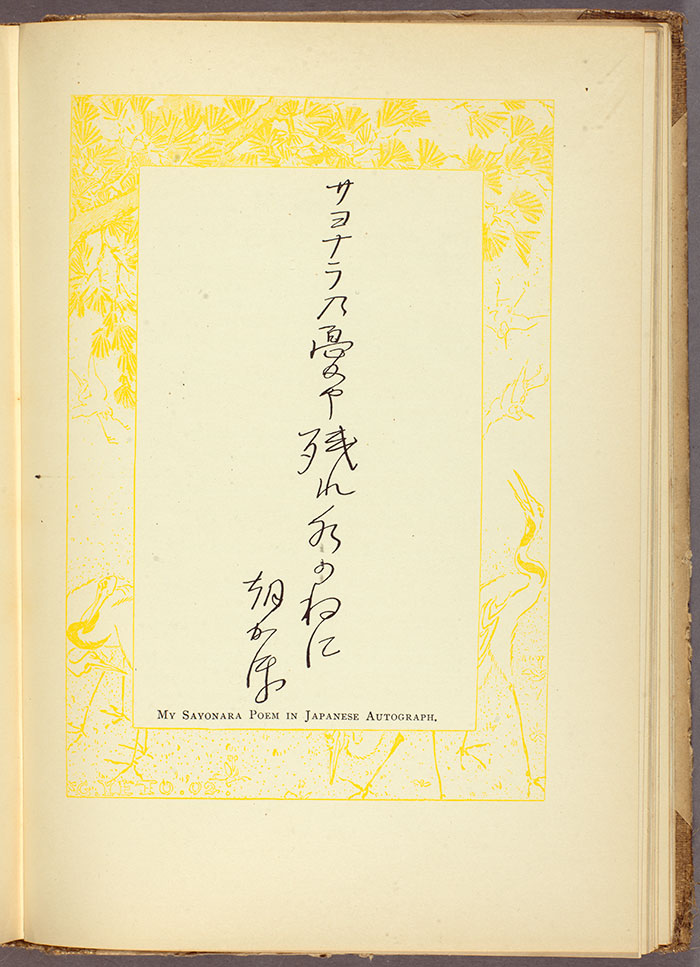 サヨナラ乃憂や残れ水のねに
朝かほ
MY SAYONARA POEM IN JAPANESE AUTOGRAPH.
G. YETO. 02.